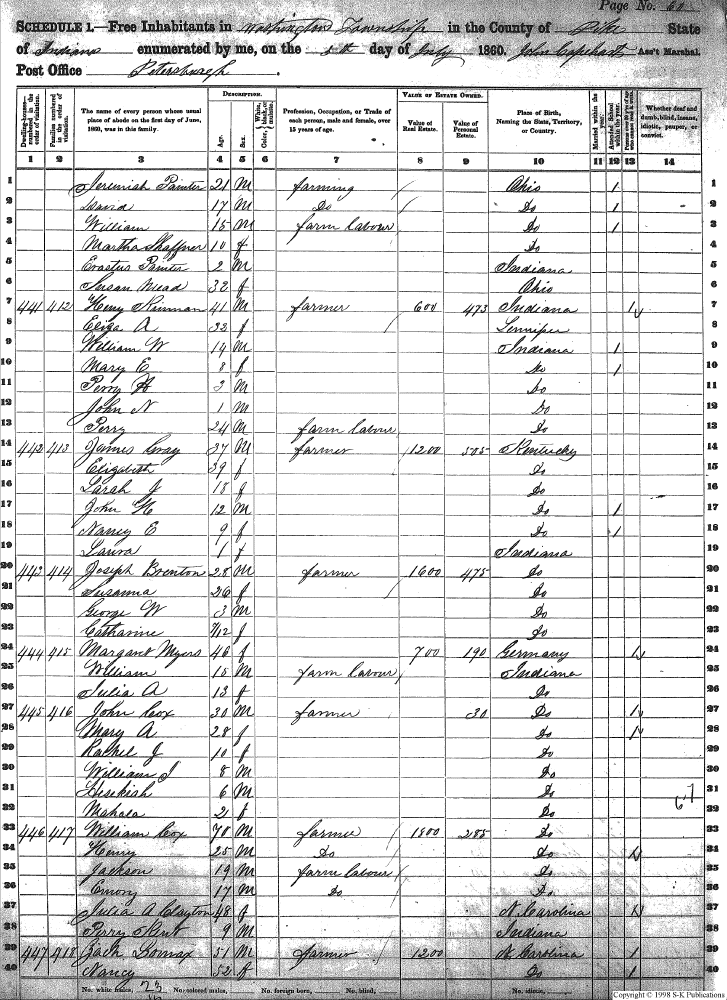 Page No. 60
SCHEDULE 1.—Free Inhabitants in Washington Township in the County of Pike State
of Indiana enumerated by me, on the 5th day of July 1860. John Capehart Ass't Marshal.
Post Office Petersburgh.
DESCRIPTION. VALUE OF ESTATE OWNED.
Dwelling-houses—numbered in the order of visitation. Families numbered in the order of visitation. The name of every person whose usual place of abode on the first day of June, 1860, was in this family. Age. Sex. Color, White, black, or mulatto. Profession, Occupation, or Trade of each person, male and female, over 15 years of age. Value of Real Estate. Value of Personal Estate. Place of Birth, Naming the State, Territory, or Country. Married within the year. Attended School within the year. Whether deaf and dumb, blind, insane, idiotic, pauper, or convict.
1 2 3 4 5 6 7 8 9 10 11 12 13 14
1 Jeremiah Painter 21 M farming / Ohio 1 1
2 David 17 M Do / Do 1 2
3 William 15 M farm labour Do 1 3
4 Martha Shaffner 10 f Do 4
5 Erastus Painter 2 M Indiana 5
6 Susan Mead 32 f Ohio 6
7 441 412 Henry 41 M farmer / 600 473 Indiana 1 7
8 Eliza A 32 f 8
9 William W 14 M Indiana 1 9
10 Mary E 8 f Do 1 10
11 Perry H 3 M Do 11
12 John N 1 M Do 12
13 Perry 24 M farm labour Do 13
14 442 413 James Gray 37 M farmer 1200 505 Kentucky 14
15 Elizabeth 39 f Do 15
16 Sarah J 18 f Do 16
17 John H 12 M Do 1 17
18 Nancy E 9 f Do 1 18
19 Laura 1 f Indiana 19
20 443 414 Joseph Brenton 28 M farmer 1600 475 Do 20
21 Susanna 26 f Do 21
22 George W 3 M Do 22
23 Catharine 7/12 f Do 23
24 444 415 Margaret Myers 46 f 700 190 Germany 1 24
25 William 15 M farm labour / Indiana 25
26 Julia A 13 f Do 26
27 445 416 John Cox 30 M farmer 30 Do 1 27
28 Mary A 28 f Do 1 28
29 Rachel J 10 f Do 29
30 William J 8 M Do 30
31 Hesekiah 6 M Do 31
32 Mahala 2 f Do 67 32
33 446 417 William Cox 70 M farmer / 1800 285 Do 33
34 Henry 25 M Do / Do 1 34
35 Jackson 19 M farm labour / Do 35
36 Emory 17 M Do / Do 36
37 Julia A Clayton 48 f N. Carolina 1 37
38 Perry Kent 9 M Indiana 38
39 447 418 Zach Lomax 51 M farmer / 1200 N. Carolina 1 39
40 Nancy 52 f Do 1 40
No. white males, 23 No. colored males, No. foreign born, No. blind, No. idiotic,
Copyright © 1998 S-K Publications